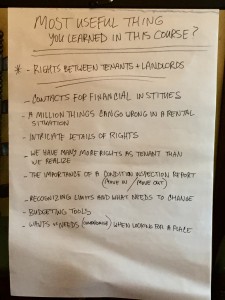 MOST USEFUL THING
YOU LEARNED IN THIS COURSE?
* - RIGHTS BETWEEN TENANTS + LANDLORDS
- CONTACTS FOR FINANCIAL INSTITUES
- A MILLION THINGS CAN GO WRONG IN A RENTAL
SITUATION
- INTRICATE DETAILS OF RIGHTS
- WE HAVE MANY MORE RIGHTS AS TENANT THAN
WE REALIZE
- THE IMPORTANCE OF A CONDITION INSPECTION REPORT
(MOVE IN / MOVE OUT)
- RECOGNIZING LIMITS AND WHAT NEEDS TO CHANGE
- BUDGETING TOOLS
- WANTS + NEEDS (COMPROMISE) WHEN LOOKING FOR A PLACE